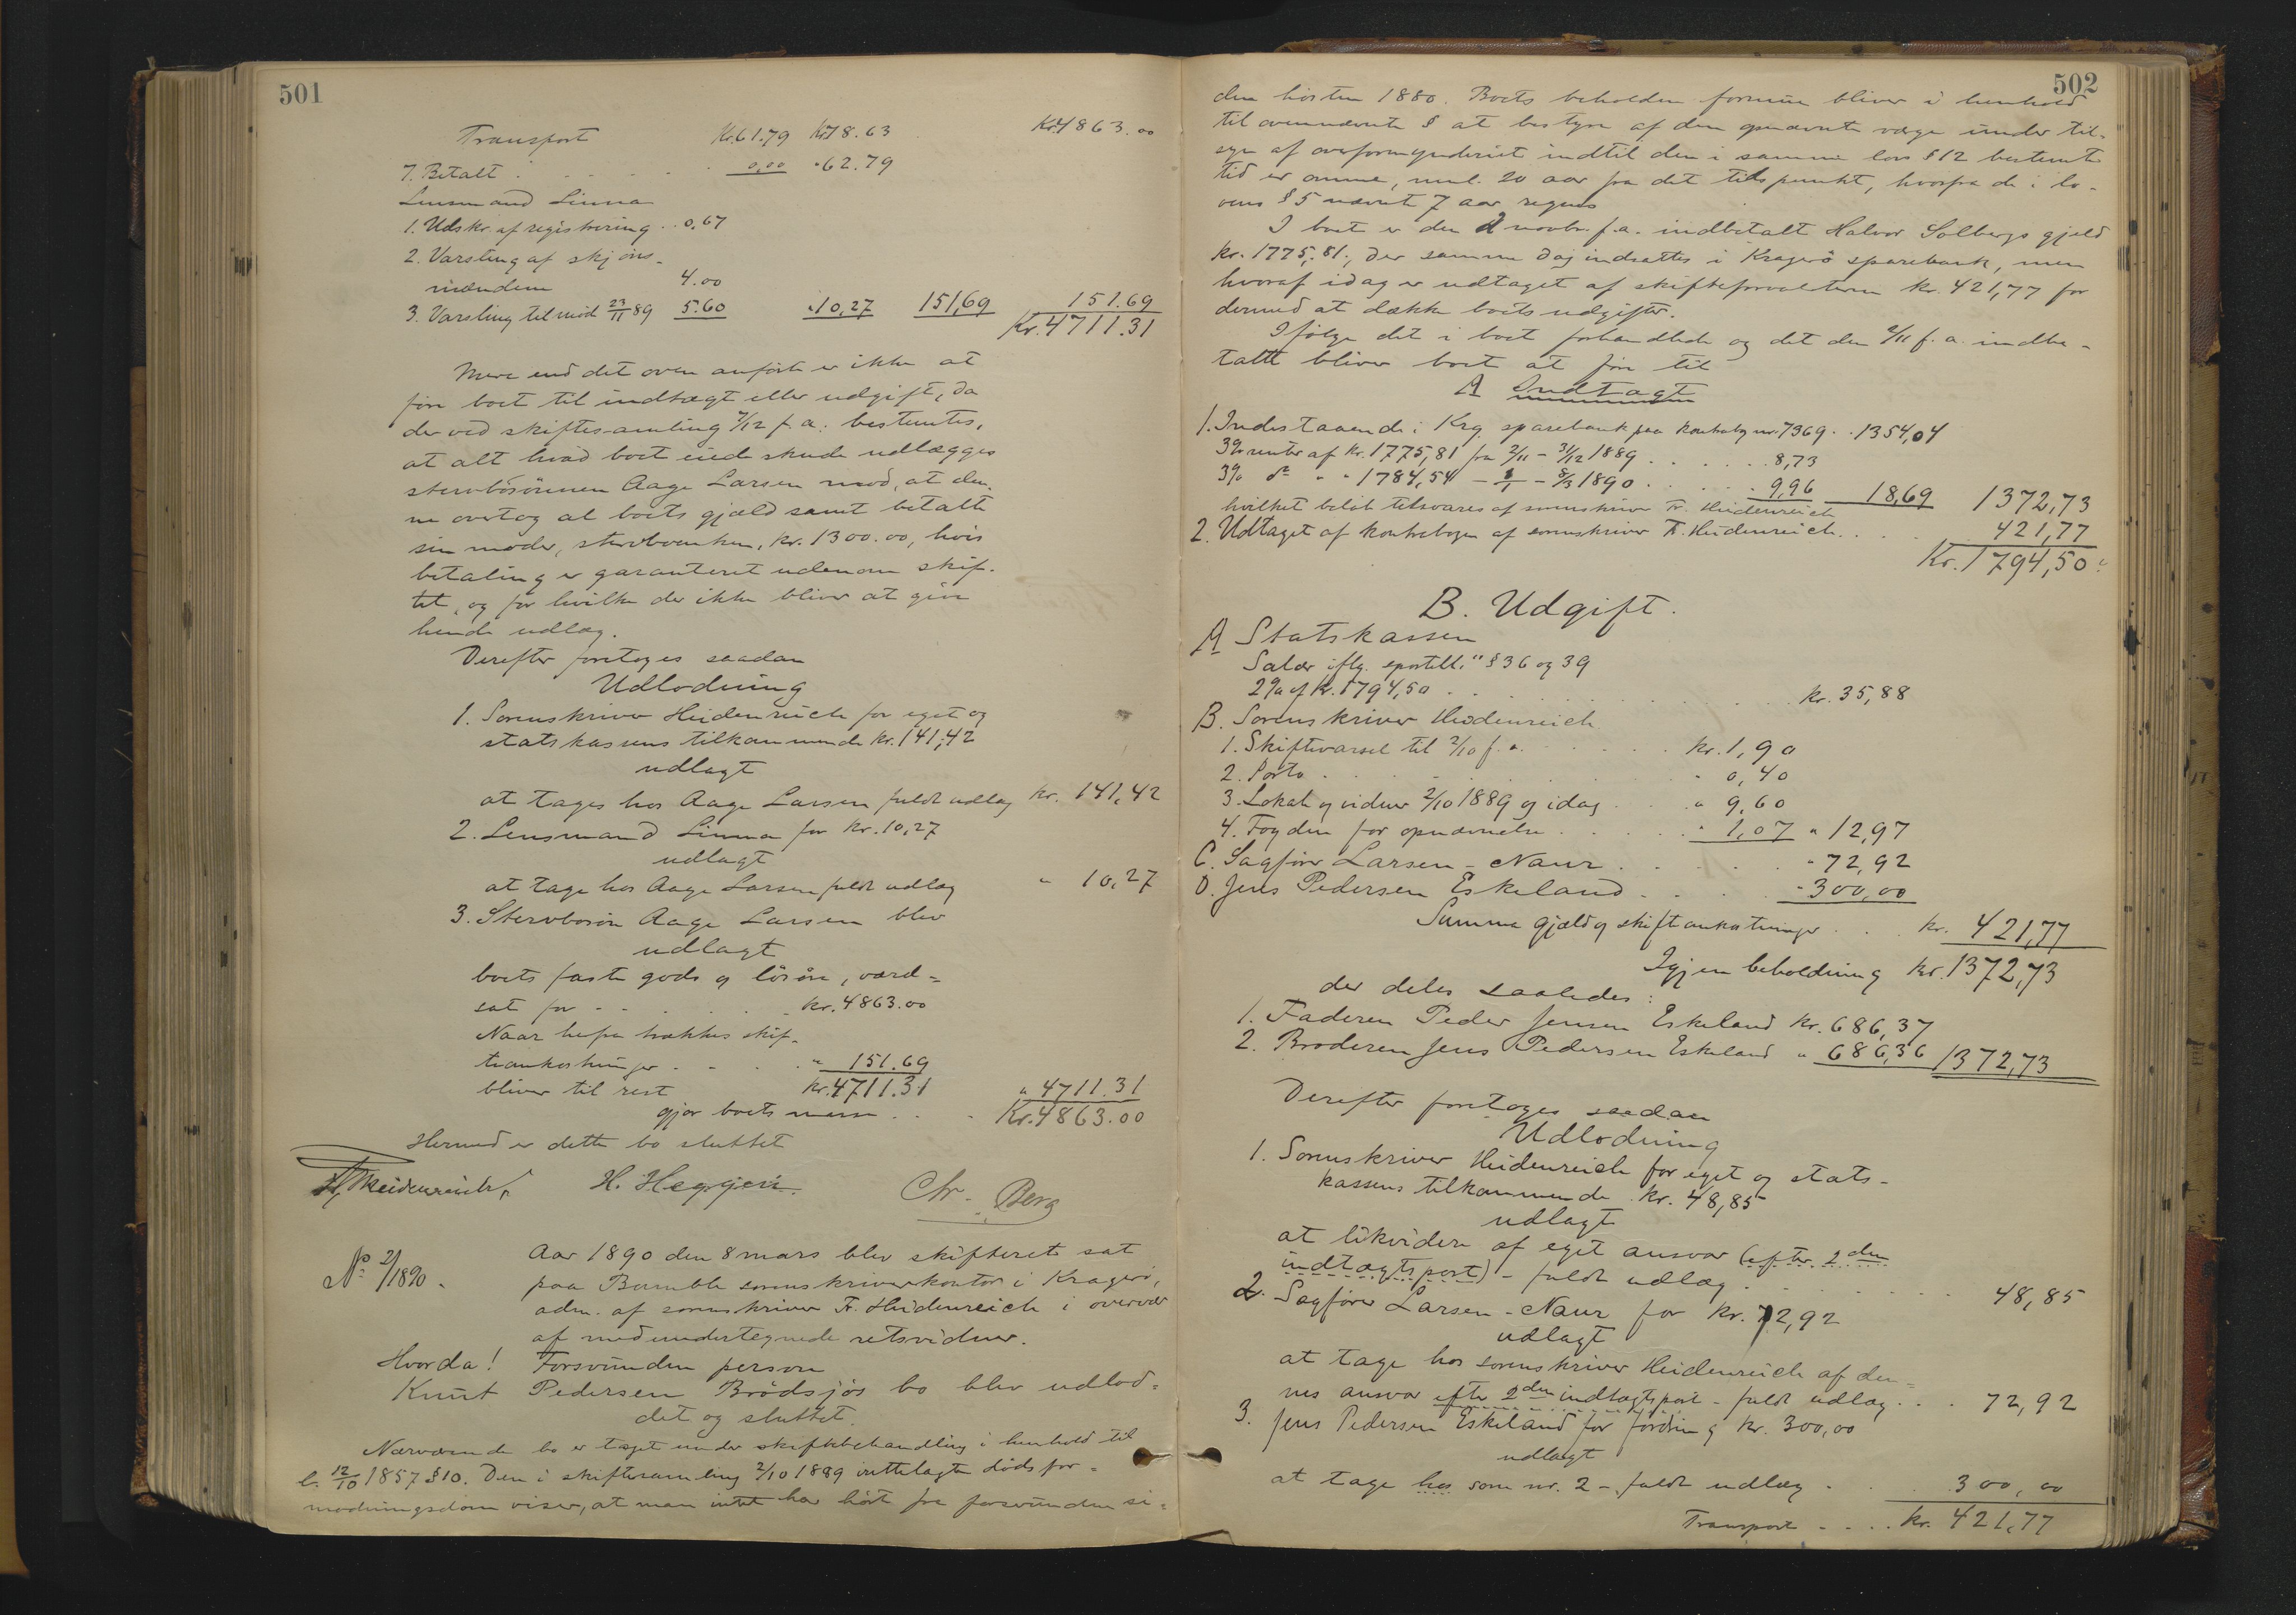 501
Transport Kr. 61.79 Kr. 78.63 Kr. 4863.00
7. Betalt . . . . . 0,00 " 62.79
Lensmand Linna
1. Udskr. af registrering . . 0,67
2. Varsling af skjöns-
mændene 4.00
3. Varsling til möd 23/11 89 5.60 " 10,27 151,69 151.69
Kr. 4711.31
Mere end det oven anförte er ikke at
före boet til indtægt eller udgift, da
der ved skiftesamling 7/12 f. a. bestemtes,
at alt hvad boet eiede skulde udlægges
stervbosönnen Aage Larsen mod, at den-
ne overtog al boets gjæld samt betalte
sin moder, stervboenken, kr. 1300.00, hvis
betaling er garanteret udenom skif-
tet, og for hvilke der ikke bliver at give
hende udlæg.
Derefter foretoges saadan
Udlodning
1. Sorenskriver Heidenreich for eget og
statskassens tilkommende kr. 141,42
udlagt
at tages hos Aage Larsen fuldt udlæg kr. 141,42
2. Lensmand Linna for kr. 10,27
udlagt
at tage hos Aage Larsen fuldt udlæg " 10,27
3. Stervbosön Aage Larsen blev
udlagt
boets faste gods og lösöre, værd-
sat for . . . . . kr. 4863.00
Naar herfra trækkes skif-
teomkostninger . . . . " 151.69
bliver til rest kr. 4711.31 " 4711.31
gjör boets masse . . . Kr. 4863.00
Hermed er dette bo sluttet
Fr. Heidenreich H. Heggen. Chr. Berg
No 2/1890. Aar 1890 den 8 mars blev skifteret sat
paa Bamble sorenskriverkontor i Kragerö,
adm. af sorenskriver Fr. Heidenreich i overvær
af medundertegnede retsvidner.
Hvorda! Forsvunden person
Knut Pedersen Brödsjös bo blev udlod-
det og sluttet.
Nærværende bo er taget under skiftebehandling i henhold til
l. 12/10 1857 § 10. Den i skiftesamling 2/10 1889 irettelagte dödsfor-
modningsdom viser, at man intet har hört fra forsvundne si-
502
den hösten 1880. Boets beholdne formue bliver i henhold
til ovennævnte § at bestyre af den opnævnte værge under til-
syn af overformynderiet indtil den i samme lovs § 12 bestemte
tid er omme, nml. 20 aar fra det tidspunkt, hvorfra de i lo-
vens § 5 nævnte 7 aar regnes
I boet er den 2 novbr. f. a. indbetalt Halvor Solbergs gjæld
kr. 1775,81, der samme dag indsattes i Kragerö sparebank, men
hvoraf idag er udtaget af skifteforvalteren kr. 421,77 for
dermed at dække boets udgifter.
Ifölge det i boet forhandlede og det den 2/11 f. a. indbe-
talte bliver boet at före til
A Indtægt
1. Indestaaende i Krg. sparebank paa kontrabog nr. 7369 . . 1354,04
3% renter af kr. 1775,81 fra 2/11 - 31/12 1889 . . . . . . 8,73
3% do " " 1784,54 - 1/1 - 8/3 1890 . . . . . . 9,96 18,69 1372,73
hvilket belöb tilsvares af sorenskriver Fr. Heidenreich
2. Udtaget af kontrabogen af sorenskriver Fr. Heidenreich . . . . . 421,77
Kr. 1794,50
B. Udgift.
A Statskassen
Salær iflg. sportell. § 36 og 39
2% af kr. 1794,50 . . . . . . . . . kr. 35,88
B. Sorenskriver Heidenreich
1. Skiftevarsel til 2/10 f. a. . . . . . kr. 1,90
2. Porto . . . . . . . " 0,40
3. Lokale og vidner 2/10 1889 og idag . . . " 9,60
4. Fogden for opnævnelse . . . . . " 1,07 " 12,97
C. Sagförer Larsen-Naur . . . . . " 72,92
D. Jens Pedersen Eskeland . . . . " 300,00
Summa gjæld og skifteomkostninger . . . kr. 421,77
Igjen beholdning kr. 1372,73
der deles saaledes:
1. Faderen Peder Jensen Eskeland kr. 686,37
2. Broderen Jens Pedersen Eskeland " 686,36 1372,73
Derefter foretoges saadan
Udlodning
1. Sorenskriver Heidenreich for eget og stats-
kassens tilkommende kr. 48,85
udlagt
at likvidere af eget ansvar (efter 2den
indtægtspost) - fuldt udlæg . . . . . . . 48,85
2. Sagförer Larsen-Naur for kr. 72,92
udlagt
at tage hos sorenskriver Heidenreich af den-
nes ansvar efter 2den indtægtspost - fuldt udlæg . . . 72,92
3. Jens Pedersen Eskeland for fordring kr. 300,00
udlagt
at tage hos som nr. 2 - fuldt udlæg . . . 300,00
Transport . . . . kr. 421,77